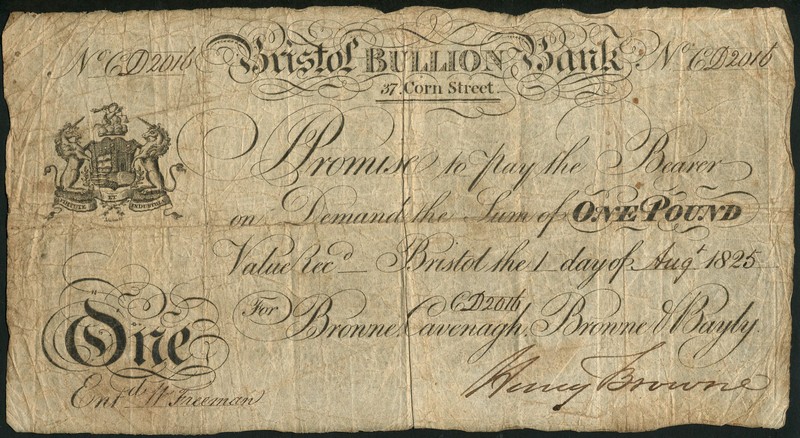 No CD2016 Bristol BULLION Bank No CD2016
37. Corn Street
Promise to pay the Bearer
on Demand the Sum of ONE POUND
VIRTUTE ET INDUSTRIA
Value Recd Bristol the 1 day of Augt 1825
CD2016
For Browne, Cavenagh, Browne & Bayly.
One
Entd W Freeman
Henry Browne